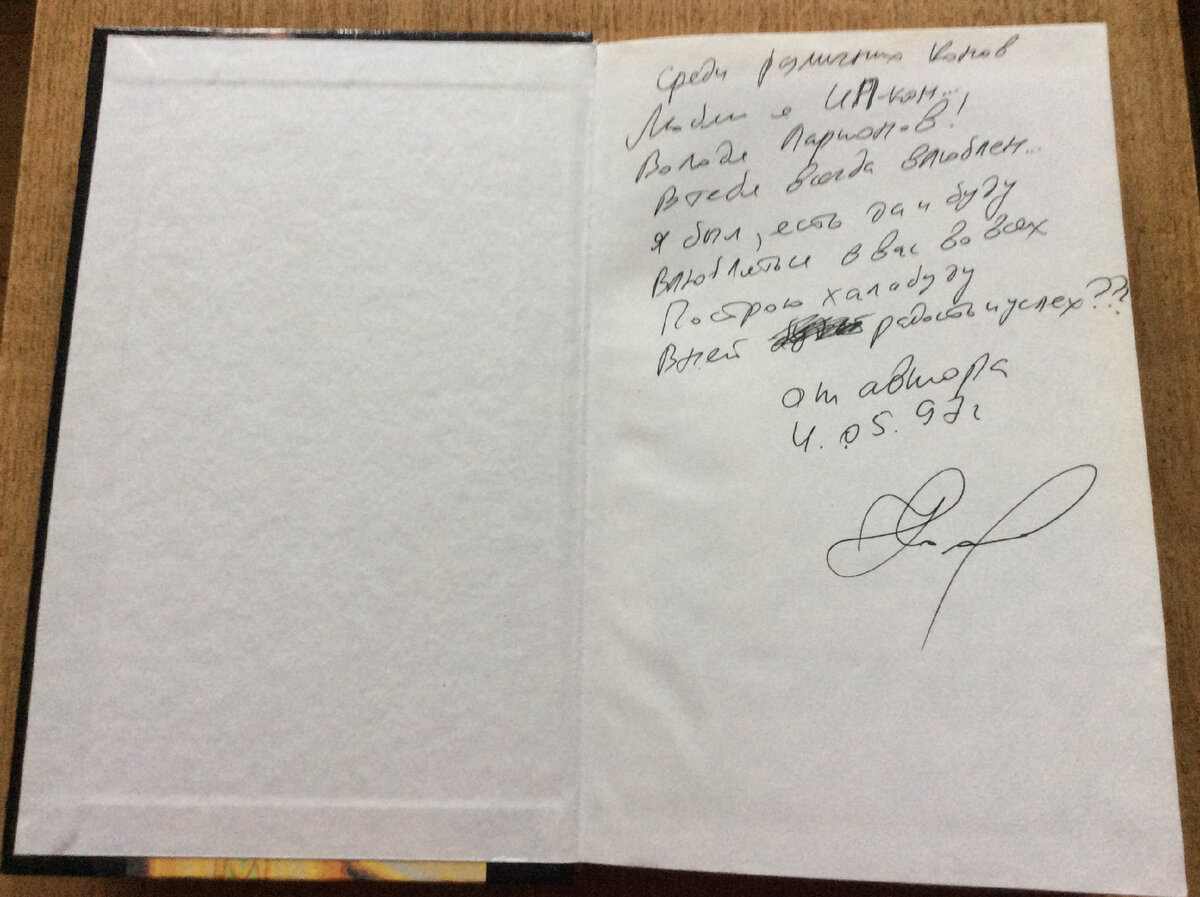 Среди различных конов
Люблю я ИП-кон...
Володя Ларионов!
В тебя всегда влюблен...
Я был, есть да и буду
Влюбляться в вас во всех
Построю халабуду
В ней радость и успех??
от автора
4.05.97г